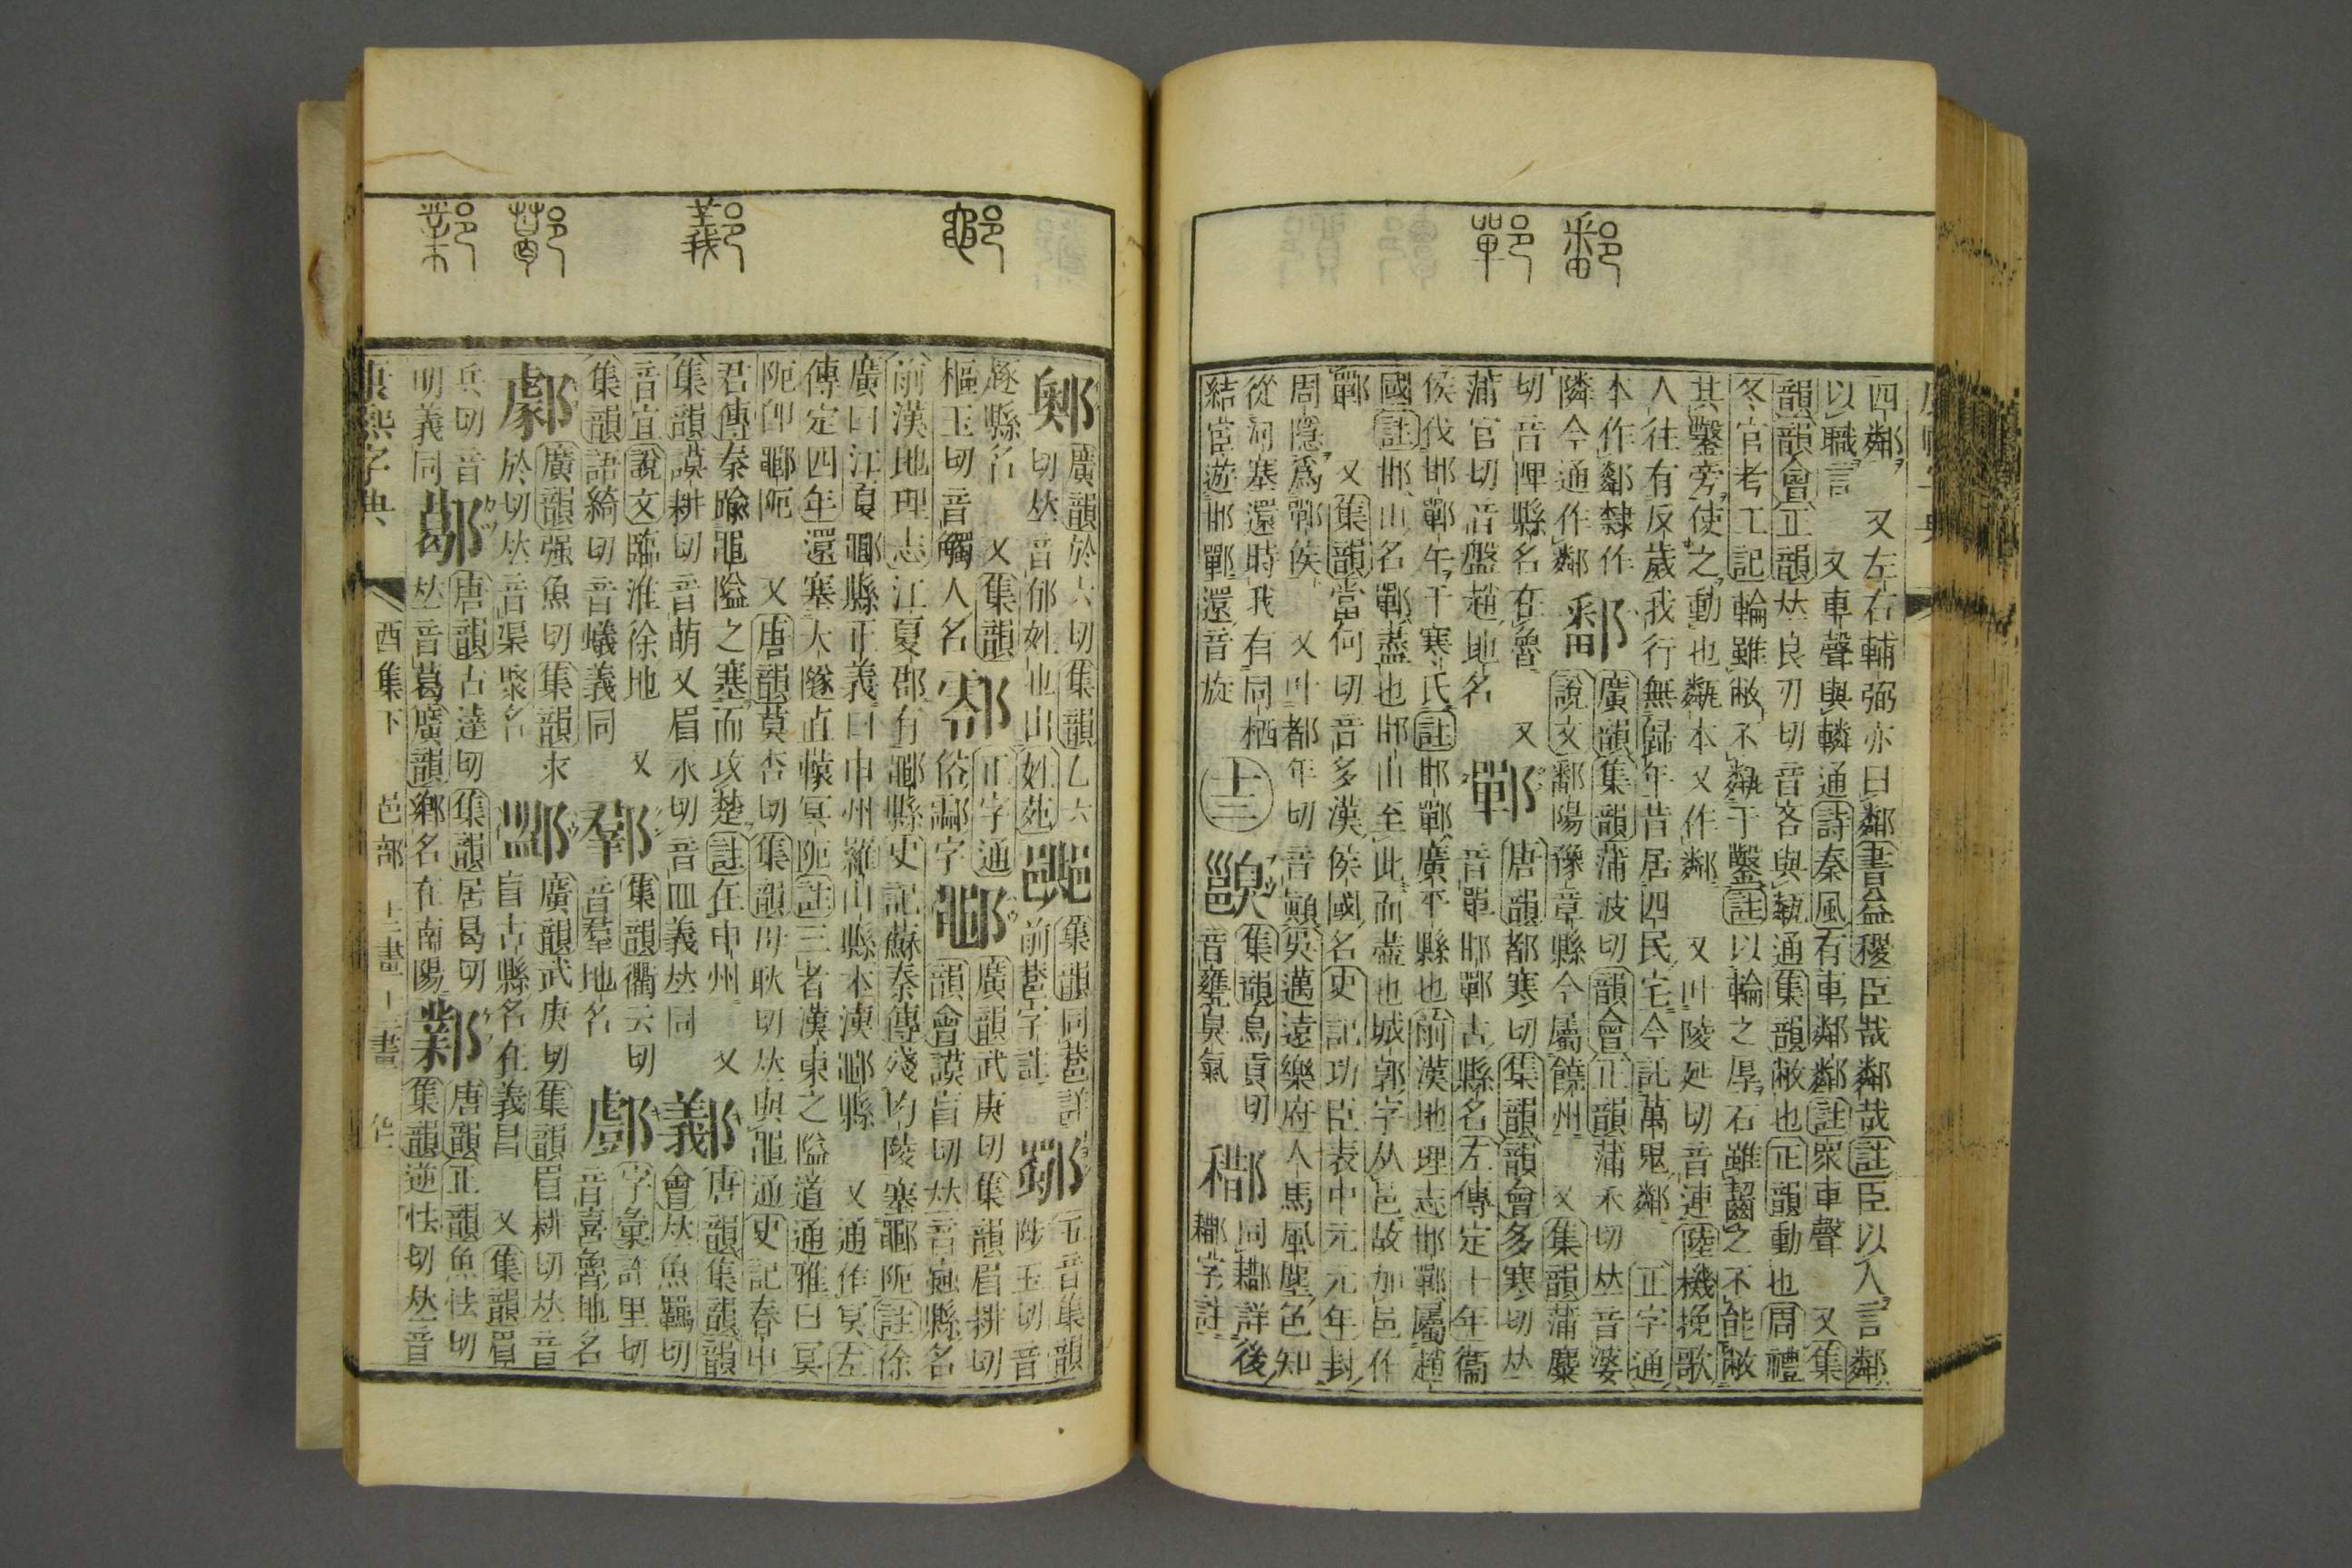 鄱
鄲
四鄰又左右輔弼亦曰鄰書益稷臣哉鄰哉註臣以人言鄰
以職言又車聲與轔通詩秦風有車鄰鄰註眾車聲又集
韻韻會正韻𠀤良刃切音吝與甐通集韻敝也正韻動也周禮
冬官考工記輪雖敝不甐于鑿註以輪之厚石雖齧之不能敝
其鑿旁使之動也甐本又作鄰又叶陵延切音連陸機挽歌
人往有反歲我行無歸年昔居四民宅今託萬鬼鄰正字通
本作鄰隸作
隣今通作鄰
鄱
廣韻集韻蒲波切韻會正韻蒲禾切𠀤音婆
說文鄱陽豫章縣今屬饒州又集韻蒲麋
切音陴縣名在魯又
蒲官切音盤趙地名
鄲
唐韻都寒切集韻韻會多寒切𠀤
音單邯鄲古縣名左傳定十年衞
侯伐邯鄲午于寒氏註邯鄲廣平縣也前漢地理志邯鄲屬趙
國註邯山名鄲盡也邯山至此而盡也城郭字从邑故加邑作
鄲又集韻當何切音多漢侯國名史記功臣表中元元年封
周隱爲鄲侯又叶都年切音顚吳邁遠樂府人馬風塵色知
從河塞還時我有同栖
結宦遊邯鄲還音旋
十三
集韻烏貢切
音甕臭氣
同鄰詳後
鄰字註
鄳
鄯
鄴
鄓
廣韻於六切集韻乙六
切𠀤音郁姓也出姓苑
集韻同巷詳
前巷字註
鄸
五音集韻
陟玉切音
逐縣名又集韻
樞玉切音觸人名
正字通
俗酃字
鄳
廣韻武庚切集韻眉耕切
韻會謨盲切𠀤音盲縣名
前漢地理志江夏郡有鄳縣史記蘇秦傳殘均陵塞鄳阨註徐
廣曰江夏鄳縣正義曰申州羅山縣本漢鄳縣又通作冥左
傳定四年還塞大隧直轅冥阨註三者漢東之隘道通雅曰冥
阨卽鄳阨又唐韻莫杏切集韻母耿切𠀤與黽通史記春申
君傳秦踰黽隘之塞而攻楚註在申州又
集韻謨耕切音萌又眉永切音皿義𠀤同
唐韻集韻韻
會𠀤魚羈切
音宜說文臨淮徐地又
集韻語綺切音蟻義同
集韻衢云切
音羣地名
字彙許里切
音喜魯地名
廣韻强魚切集韻求
於切𠀤音渠聚名
廣韻武庚切集韻眉耕切𠀤音
盲古縣名在義昌又集韻眉
兵切音
明義同
唐韻古達切集韻居曷切
𠀤音葛廣韻鄉名在南陽
鄴
唐韻正韻魚怯切
集韻逆怯切𠀤音
康熙字典
酉集下
邑部